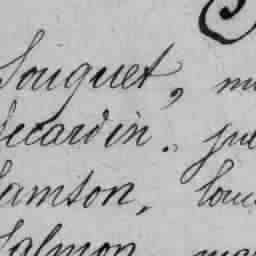 S
Souquet, m
Sicardin. jul
Samson, loui
Salmon, ma